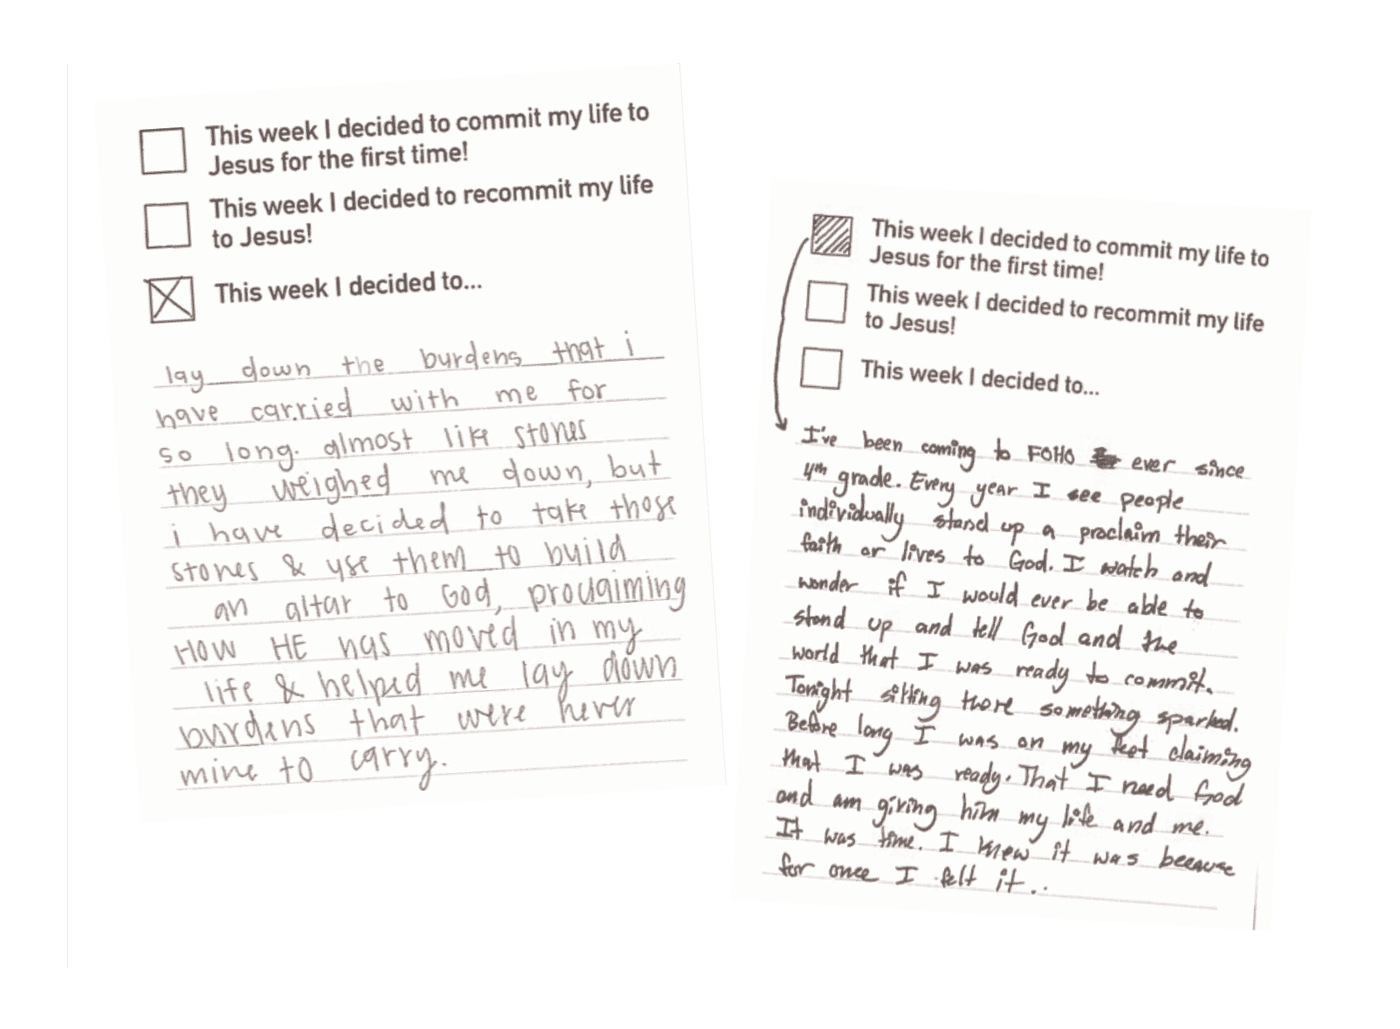 This week I decided to commit my life to
Jesus for the first time!
This week I decided to recommit my life
to Jesus!
This week I decided to...
lay down the burdens that i
have carried with me for
so long. almost like stones
they weighed me down, but
i have decided to take those
stones & use them to build
an altar to God, proclaiming
HOW HE has moved in my
life & helped me lay down
burdens that were never
mine to carry.
This week I decided to commit my life to
Jesus for the first time!
This week I decided to recommit my life
to Jesus!
This week I decided to...
I've been coming to FOHO ever since
4th grade. Every year I see people
individually stand up a proclaim their
faith or lives to God. I watch and
wonder if I would ever be able to
stand up and tell God and the
world that I was ready to commit.
Tonight sitting there something sparked.
Before long I was on my feet claiming
that I was ready. That I need God
and am giving him my life and me.
It was time. I knew it was because
for once I felt it..